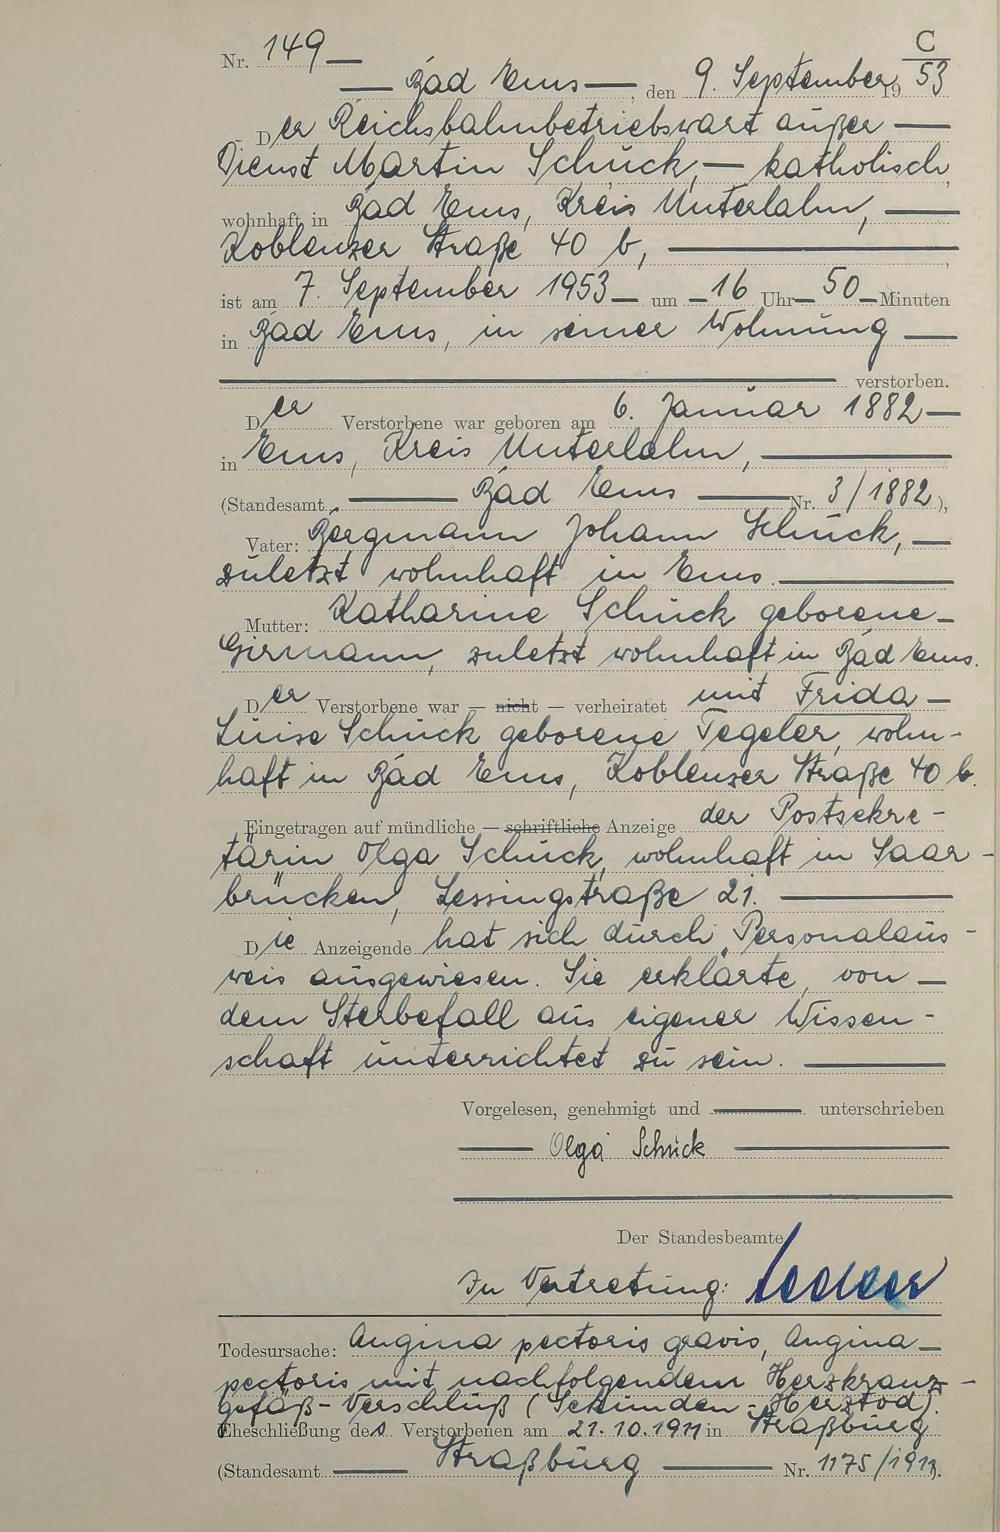 C
Nr. 149
Bad Ems, den 9. September 1953
Der Reichsbahnbetriebswart außer
Dienst Martin Schück, katholisch,
wohnhaft in Bad Ems, Kreis Unterlahn,
Koblenzer Straße 40 b,
ist am 7. September 1953 um 16 Uhr 50 Minuten
in Bad Ems, in seiner Wohnung
verstorben.
Der Verstorbene war geboren am 6. Januar 1882
in Ems, Kreis Unterlahn,
(Standesamt Bad Ems Nr. 3/1882),
Vater: Bergmann Johann Schück,
zuletzt wohnhaft in Ems.
Mutter: Katharine Schück geborene
Girmann, zuletzt wohnhaft in Bad Ems.
Der Verstorbene war — nicht — verheiratet mit Frida
Luise Schück geborene Tegeler, wohn-
haft in Bad Ems, Koblenzer Straße 40 b.
Eingetragen auf mündliche — schriftliche Anzeige der Postsekre-
tärin Olga Schück, wohnhaft in Saar-
brücken, Lessingstraße 21.
Die Anzeigende hat sich durch Personalaus-
weis ausgewiesen. Sie erklärte, von
dem Sterbefall aus eigener Wissen-
schaft unterrichtet zu sein.
Vorgelesen, genehmigt und unterschrieben
Olga Schück
Der Standesbeamte
In Vertretung:
Todesursache: Angina pectoris gravis, Angina
pectoris mit nachfolgendem Herzkranz-
gefäß-Verschluß (Sekunden-Herztod).
Eheschließung des Verstorbenen am 21.10.1911 in Straßburg
(Standesamt Straßburg Nr. 1175/1911).